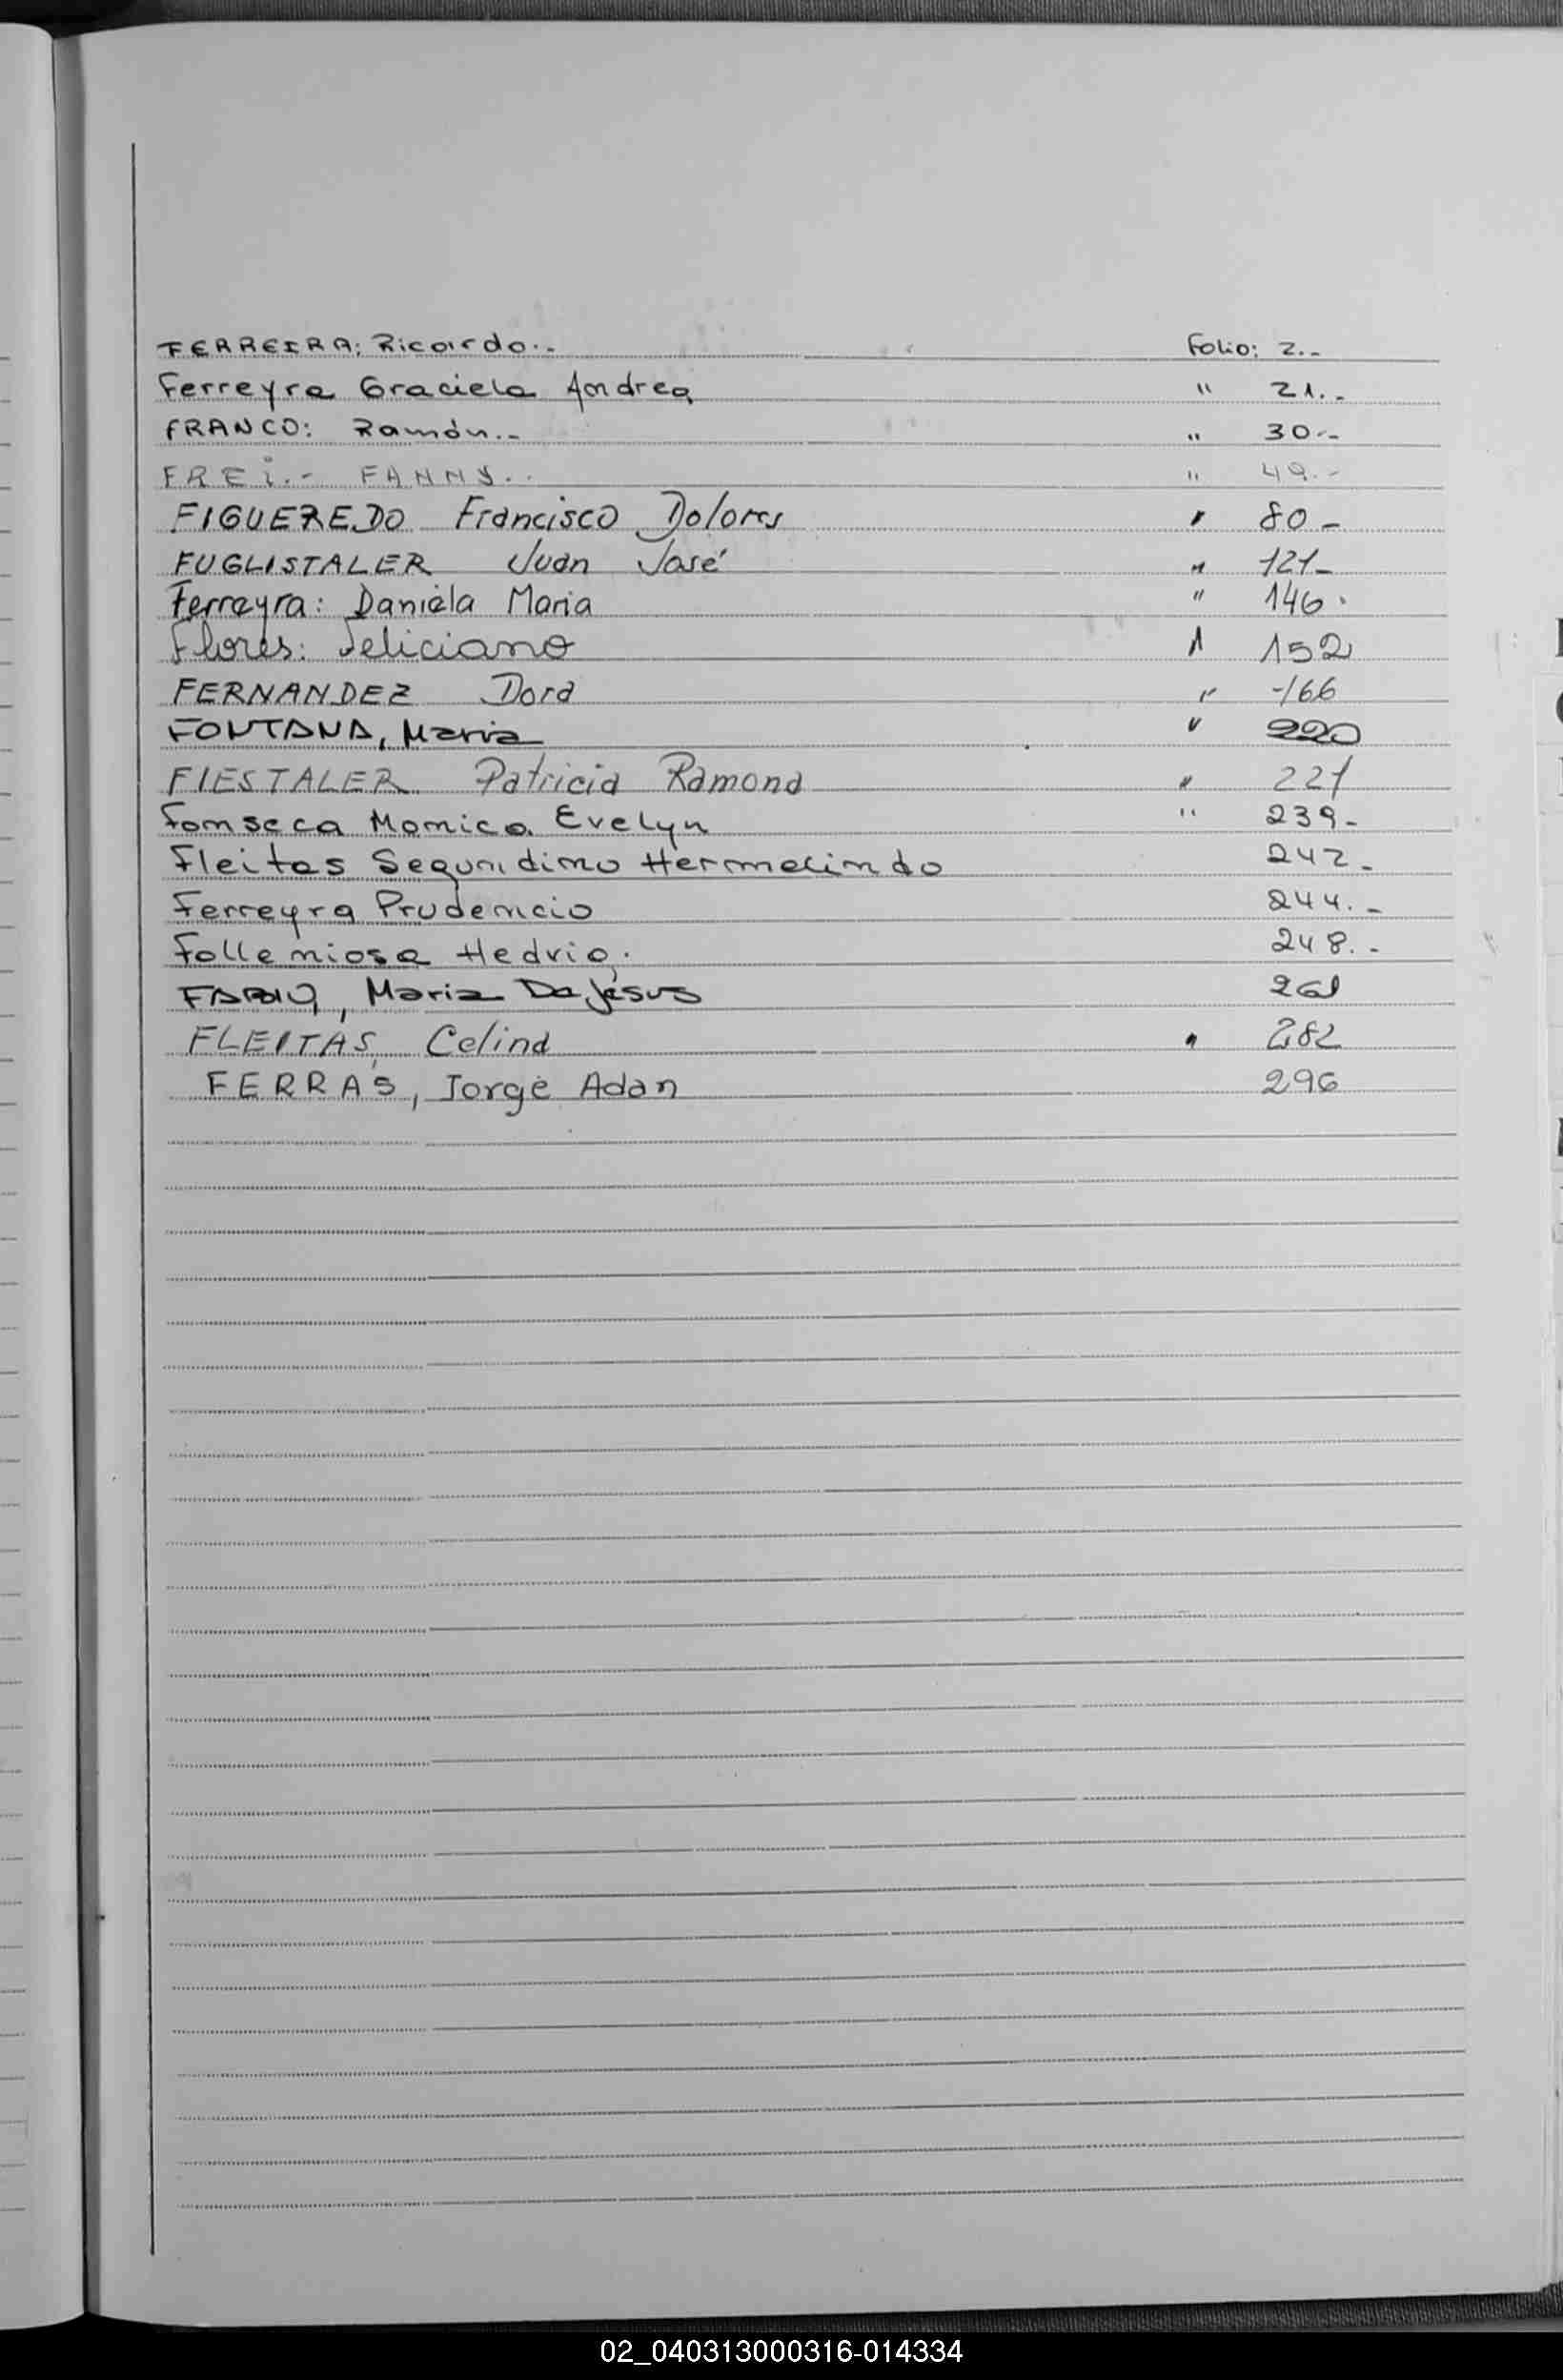 FERREIRA: Ricardo.- Folio: 2.-
Ferreyra Graciela Andrea " 21.-
FRANCO: Ramón.- " 30.-
FREI.- FANNY.. " 49.-
FIGUEREDO Francisco Dolores " 80-
FUGLISTALER Juan José " 121-
Ferreyra: Daniela Maria " 146.
Flores: Feliciano " 152
FERNANDEZ Dora " 166
FONTANA, Maria " 220
FIESTALER Patricia Ramona " 221
Fonseca Monica Evelyn " 239-
Fleitas Segundino Hermelindo 242-
Ferreyra Prudencio 244.-
Folleniosa Hedvio. 248.-
Maria De Jesus 261
FLEITAS, Celina " 282
FERRAS, Jorge Adan 296
02_040313000316-014334